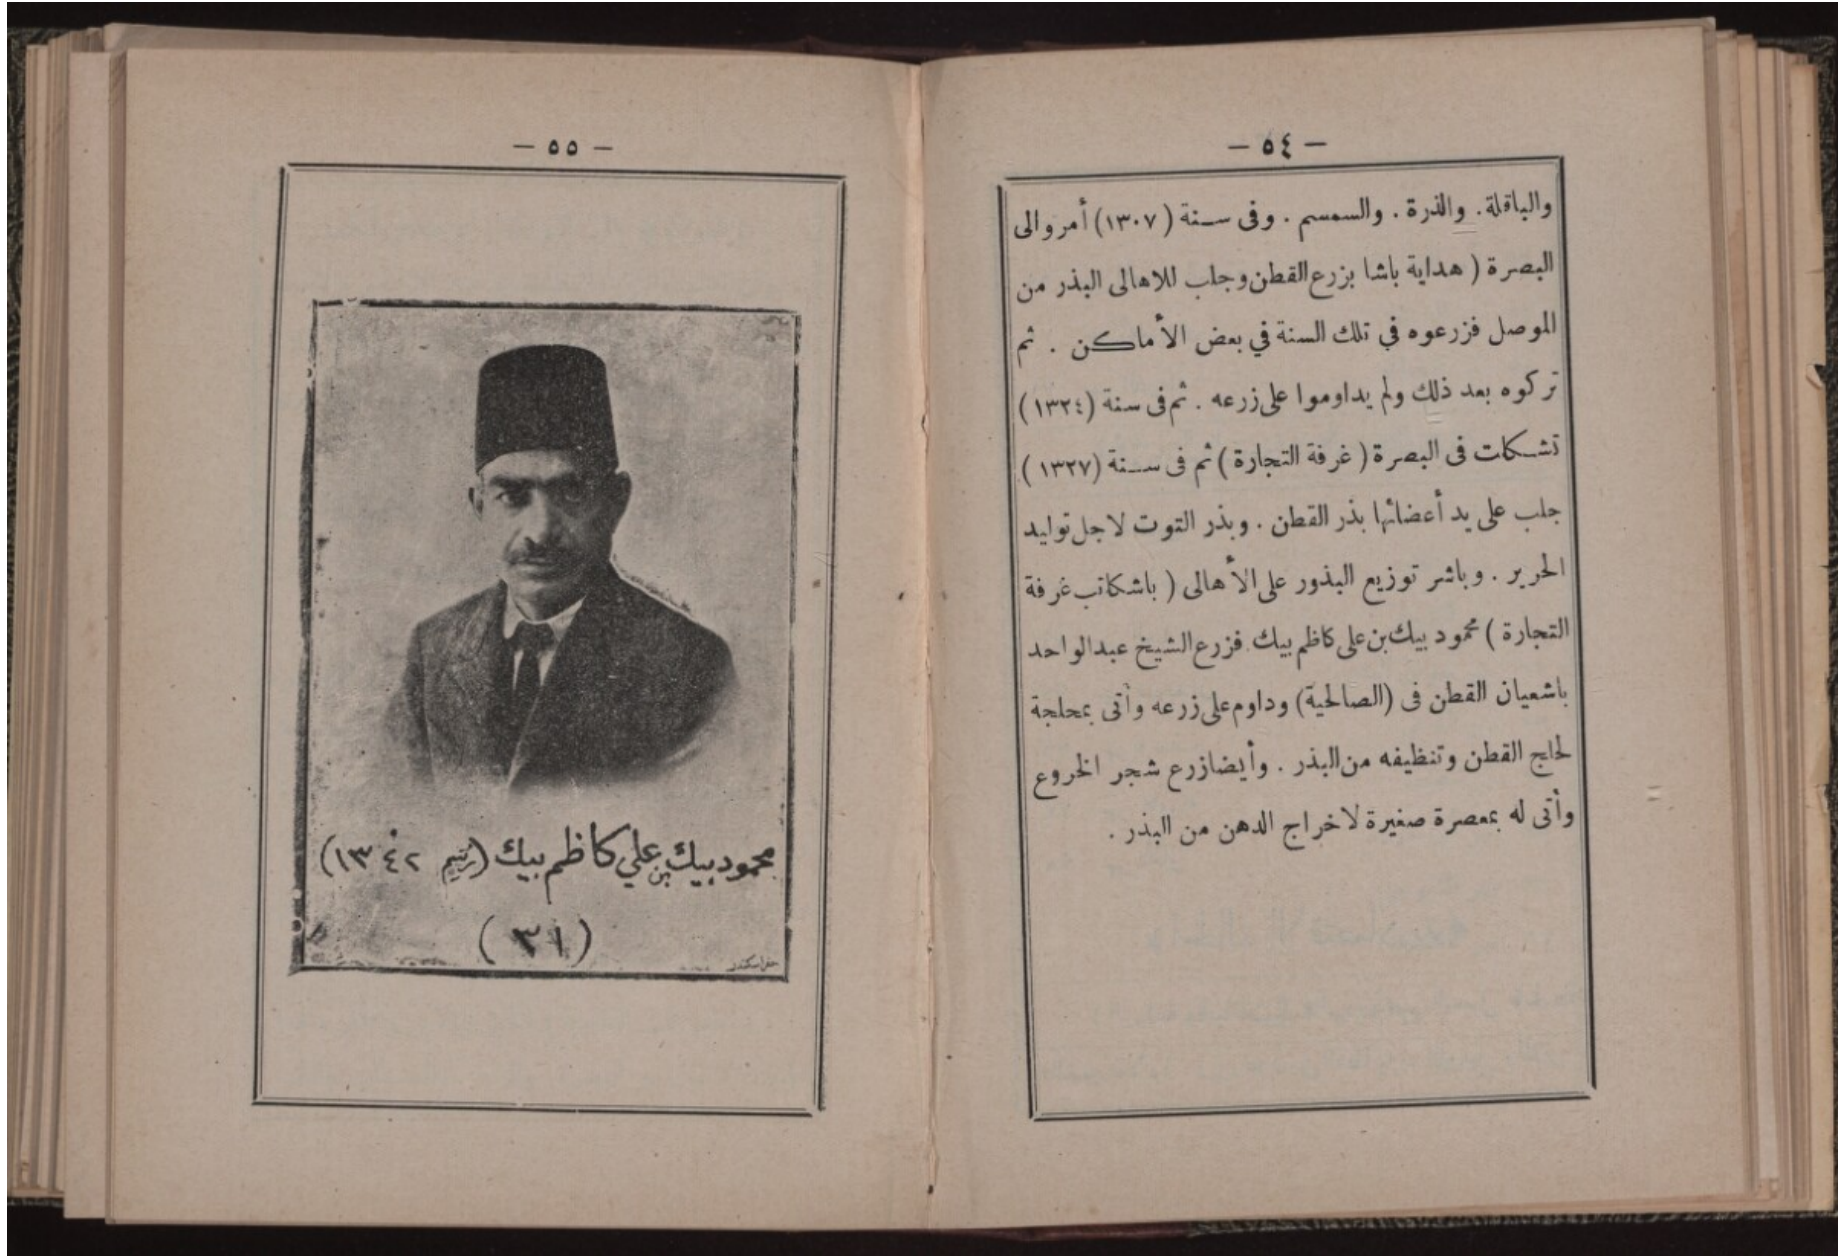 — ٥٤ —
والباقلة . والذرة . والسمسم . وفى سنة (١٣٠٧) أمر والى
البصرة ( هداية باشا بزرع القطن وجلب للاهالى البذر من
الموصل فزرعوه في تلك السنة في بعض الأماكن . ثم
تركوه بعد ذلك ولم يداوموا على زرعه . ثم فى سنة (١٣٢٤)
تشكلت فى البصرة ( غرفة التجارة ) ثم فى سنة (١٣٢٧)
جلب على يد أعضائها بذر القطن . وبذر التوت لاجل توليد
الحرير . وباشر توزيع البذور على الأهالى ( باشكاتب غرفة
التجارة ) محمود بيك بن على كاظم بيك . فزرع الشيخ عبدالواحد
باشعيان القطن فى (الصالحية) وداوم على زرعه وأتى بمحلجة
لحلج القطن وتنظيفه من البذر . وأيضا زرع شجر الخروع
وأتى له بمعصرة صغيرة لاخراج الدهن من البذر .
— ٥٥ —
محمود بيك بن علي كاظم بيك (رسم ١٣٤٢)
(٣١)